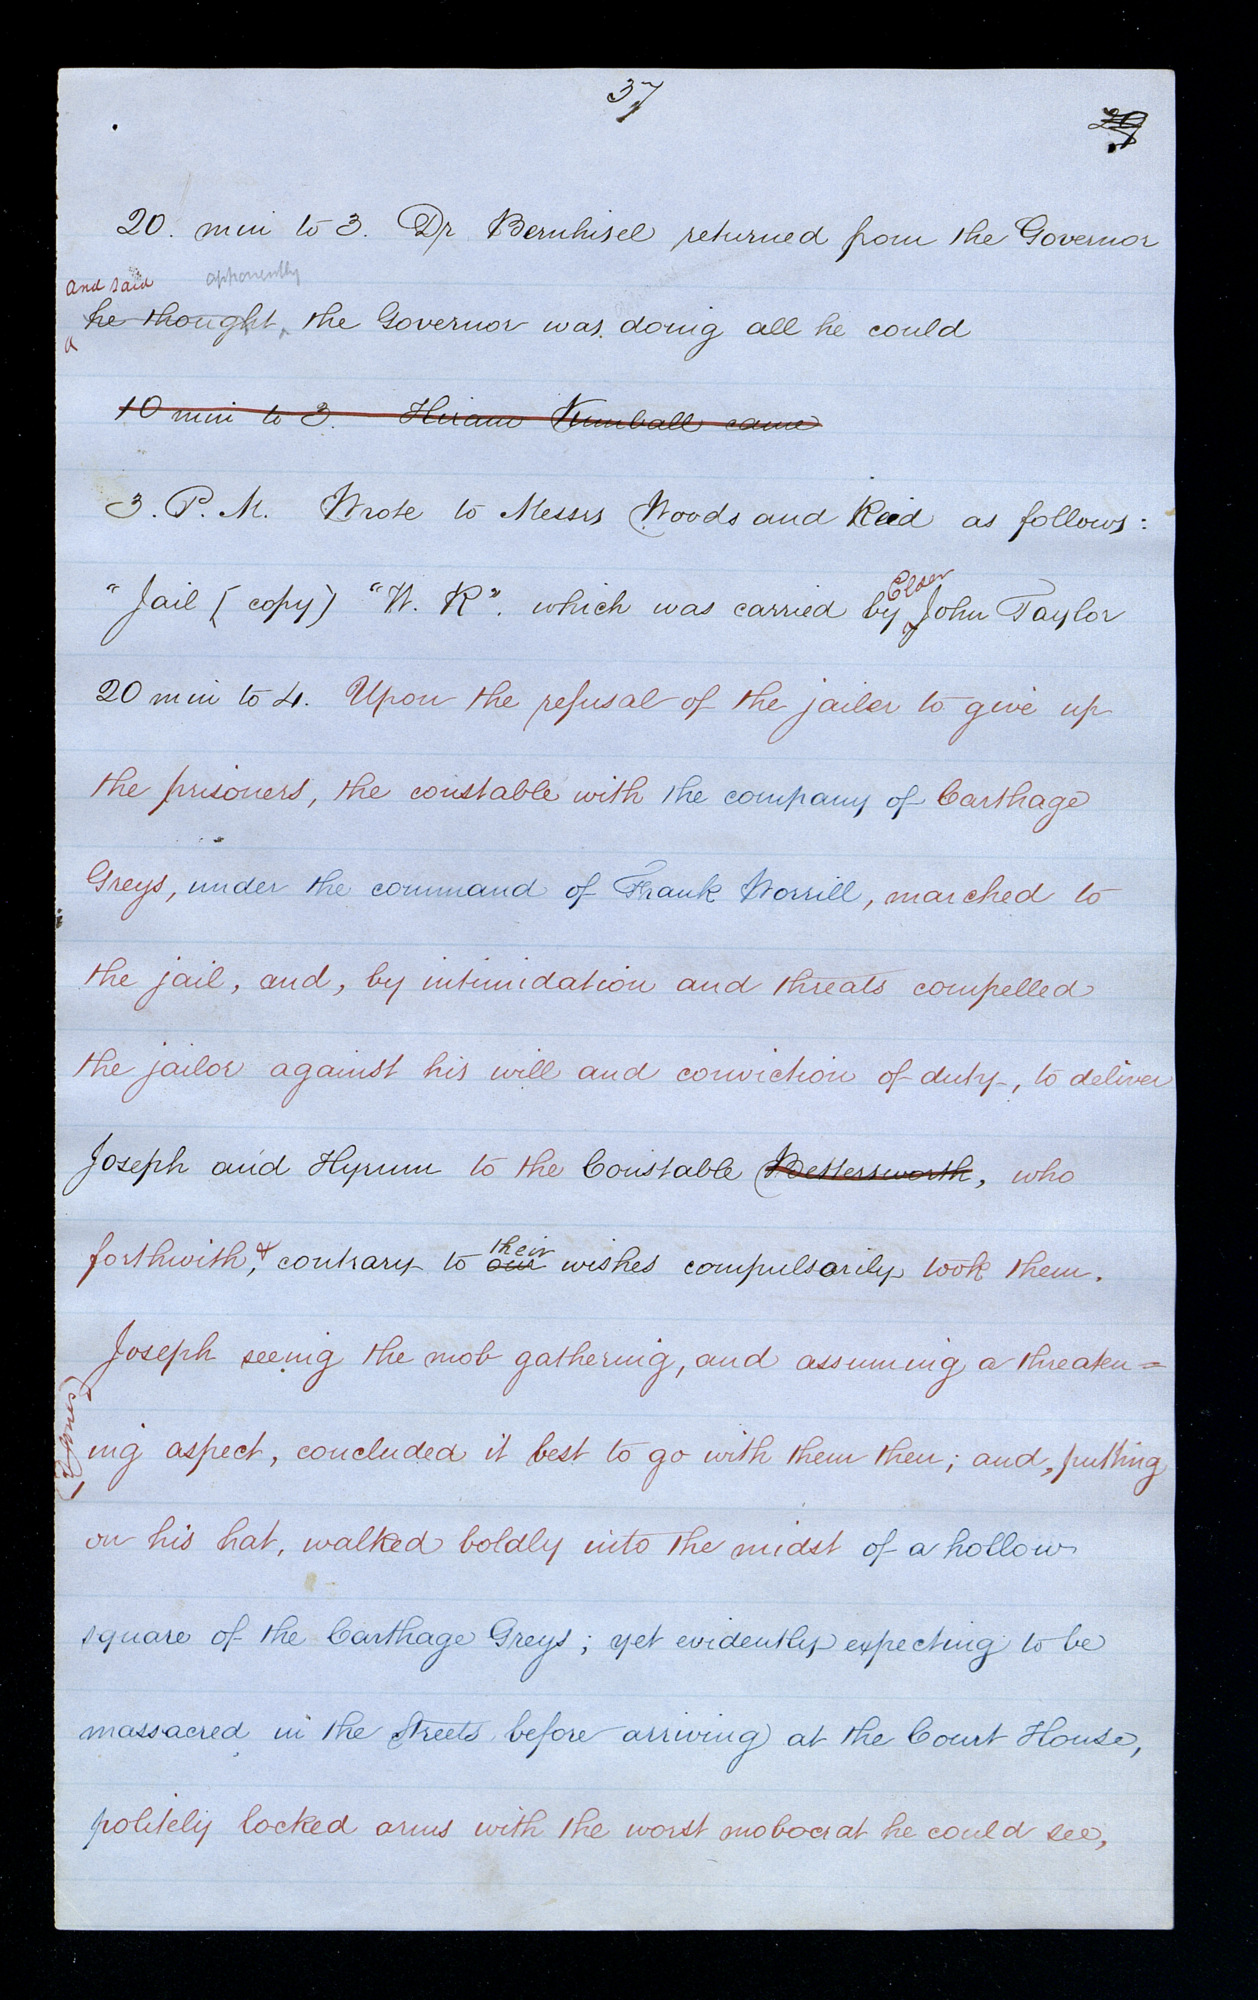 37
29
20. min to 3. Dr Bernhisel returned from the Governor
and said apparently
he thought, the Governor was doing all he could
10 min to 3. Hiram Kimball came
3. P. M. Wrote to Messrs Woods and Reid as follows:
"Jail [copy] "W. R". which was carried by Elder John Taylor
20 min to 4. Upon the refusal of the jailer to give up
the prisoners, the constable with the company of Carthage
Greys, under the command of Frank Worrill, marched to
the jail, and, by intimidation and threats compelled
the jailor against his will and conviction of duty, to deliver
Joseph and Hyrum to the Constable Bettersworth, who
forthwith, & contrary to our their wishes compulsorily took them.
Joseph seeing the mob gathering, and assuming a threaten=
ing aspect, concluded it best to go with them then; and, putting
on his hat, walked boldly into the midst of a hollow
square of the Carthage Greys; yet evidently expecting to be
massacred in the streets before arriving at the Court House,
politely locked arms with the worst mobocrat he could see,